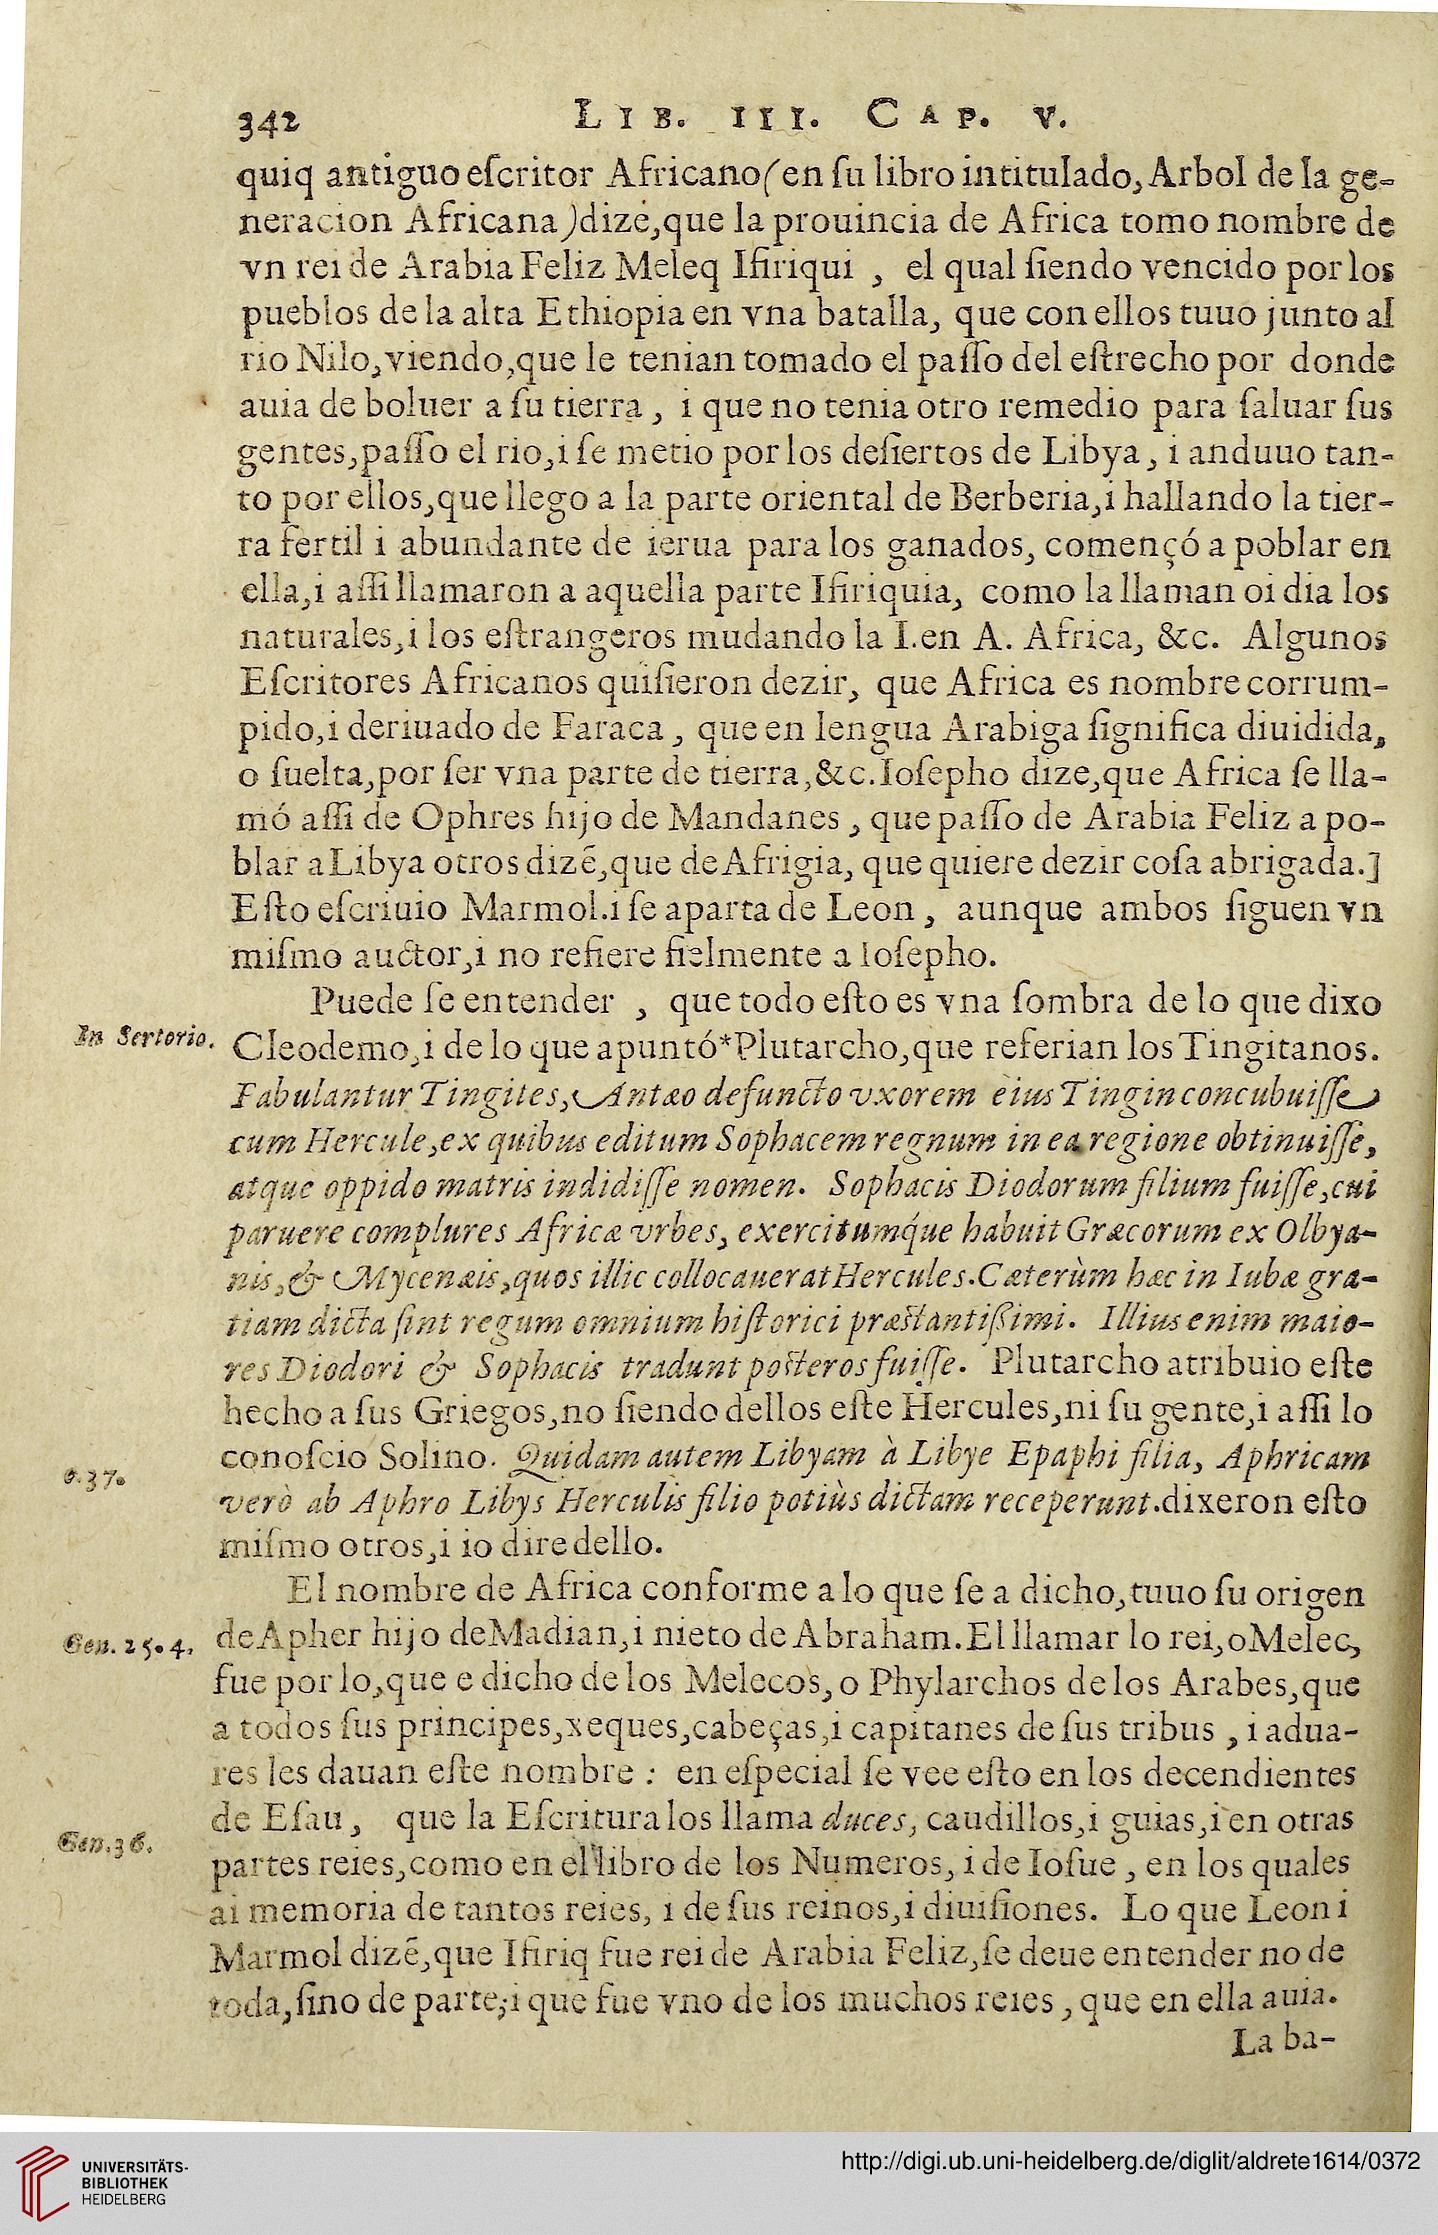 342 LIB. III. CAP. V.
quiq antiguo eſcritor Africano (en ſu libro intitulado, Arbol de la ge-
neracion Africana) dize, que la prouincia de Africa tomo nombre de
vn rei de Arabia Feliz Meleq Ifiriqui , el qual ſiendo vencido por los
pueblos de la alta Ethiopia en vna batalla, que con ellos tuuo junto al
rio Nilo, viendo, que le tenian tomado el paſſo del eſtrecho por donde
auia de boluer a ſu tierra , i que no tenia otro remedio para ſaluar ſus
gentes, paſſo el rio, i ſe metio por los deſiertos de Libya , i anduuo tan-
to por ellos, que llego a la parte oriental de Berberia, i hallando la tier-
ra fertil i abundante de ierua para los ganados, començó a poblar en
ella, i aſſi llamaron a aquella parte Ifiriquia, como la llaman oi dia los
naturales, i los eſtrangeros mudando la I. en A. Africa, &c. Algunos
Eſcritores Africanos quiſieron dezir, que Africa es nombre corrum-
pido, i deriuado de Faraca , que en lengua Arabiga ſignifica diuidida,
o ſuelta, por ſer vna parte de tierra, &c. Ioſepho dize, que Africa ſe lla-
mó aſſi de Ophres hijo de Mandanes , que paſſo de Arabia Feliz a po-
blar a Libya otros dizē, que de Afrigia, que quiere dezir coſa abrigada.]
Eſto eſcriuio Marmol. i ſe aparta de Leon , aunque ambos ſiguen vn
miſmo auctor, i no refiere fielmente a Ioſepho.
Puede ſe entender , que todo eſto es vna ſombra de lo que dixo
In Sertorio. Cleodemo, i de lo que apuntó*Plutarcho, que referian los Tingitanos.
Fabulantur Tingites, Antæo defuncto vxorem eius Tingin concubuiſſe
cum Hercule, ex quibus editum Sophacem regnum in ea regione obtinuiſſe,
atque oppido matris indidiſſe nomen. Sophacis Diodorum filium fuiſſe, cui
paruere complures Africæ vrbes, exercitumque habuit Græcorum ex Olbya-
nis, & Mycenæis, quos illic collocauerat Hercules. Cæterùm hæc in Iubæ gra-
tiam dicta ſint regum omnium hiſtorici præstantißimi. Illius enim maio-
res Diodori & Sophacis tradunt posteros fuiſſe. Plutarcho atribuio eſte
hecho a ſus Griegos, no ſiendo dellos eſte Hercules, ni ſu gente, i aſſi lo
conoſcio Solino. Quidam autem Libyam à Libye Epaphi filia, Aphricam
c.37. verò ab Aphro Libys Herculis filio potiùs dictam receperunt. dixeron eſto
miſmo otros, i io dire dello.
El nombre de Africa conforme a lo que ſe a dicho, tuuo ſu origen
Gen. 25. 4. de Apher hijo de Madian, i nieto de Abraham. El llamar lo rei, o Melec,
fue por lo, que e dicho de los Melecos, o Phylarchos de los Arabes, que
a todos ſus principes, xeques, cabeças, i capitanes de ſus tribus , i adua-
res les dauan eſte nombre : en eſpecial ſe vee eſto en los decendientes
de Eſau , que la Eſcritura los llama duces, caudillos, i guias, i en otras
Gen. 36. partes reies, como en el libro de los Numeros, i de Ioſue , en los quales
ai memoria de tantos reies, i de ſus reinos, i diuiſiones. Lo que Leon i
Marmol dizē, que Ifiriq fue rei de Arabia Feliz, ſe deue entender no de
toda, ſino de parte, i que fue vno de los muchos reies , que en ella auia.
La ba-
UNIVERSITÄTS-
BIBLIOTHEK
HEIDELBERG
http://digi.ub.uni-heidelberg.de/diglit/aldrete1614/0372